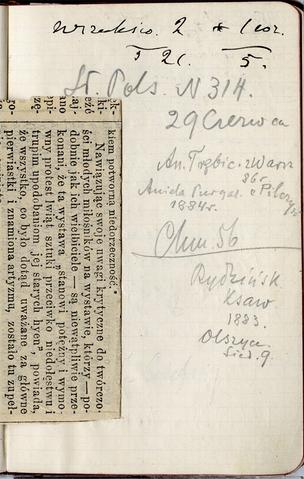 Wrześnio. 2 + 1 cor.
3 21. 5.
St. Pols. N 314.
29 Czerwca
An. Trębic. z Warsz
86 r.
Anida Purgat. z Pilczy
1884 r.
Chm. 56
Rydzińsk
Ksaw.
1883.
Olszyc.
Sied. g.
kiem potworną niedorzeczność."
Nawiązując swoje uwagi krytyczne do twórczo-
ści młodych miłośników na wystawie, którzy — po-
dobnie jak ich wielbiciele — są niewątpliwie prze-
konani, że ta wystawa „stanowi potężny i wymo-
wny protest lwiąt sztuki przeciwko niedołęstwu i
trupim upodobaniom jej starych hyen", powiada,
że wszystko, co było dotąd uważane za główne
pierwiastki, znamiona artyzmu, zostało tu zupeł-